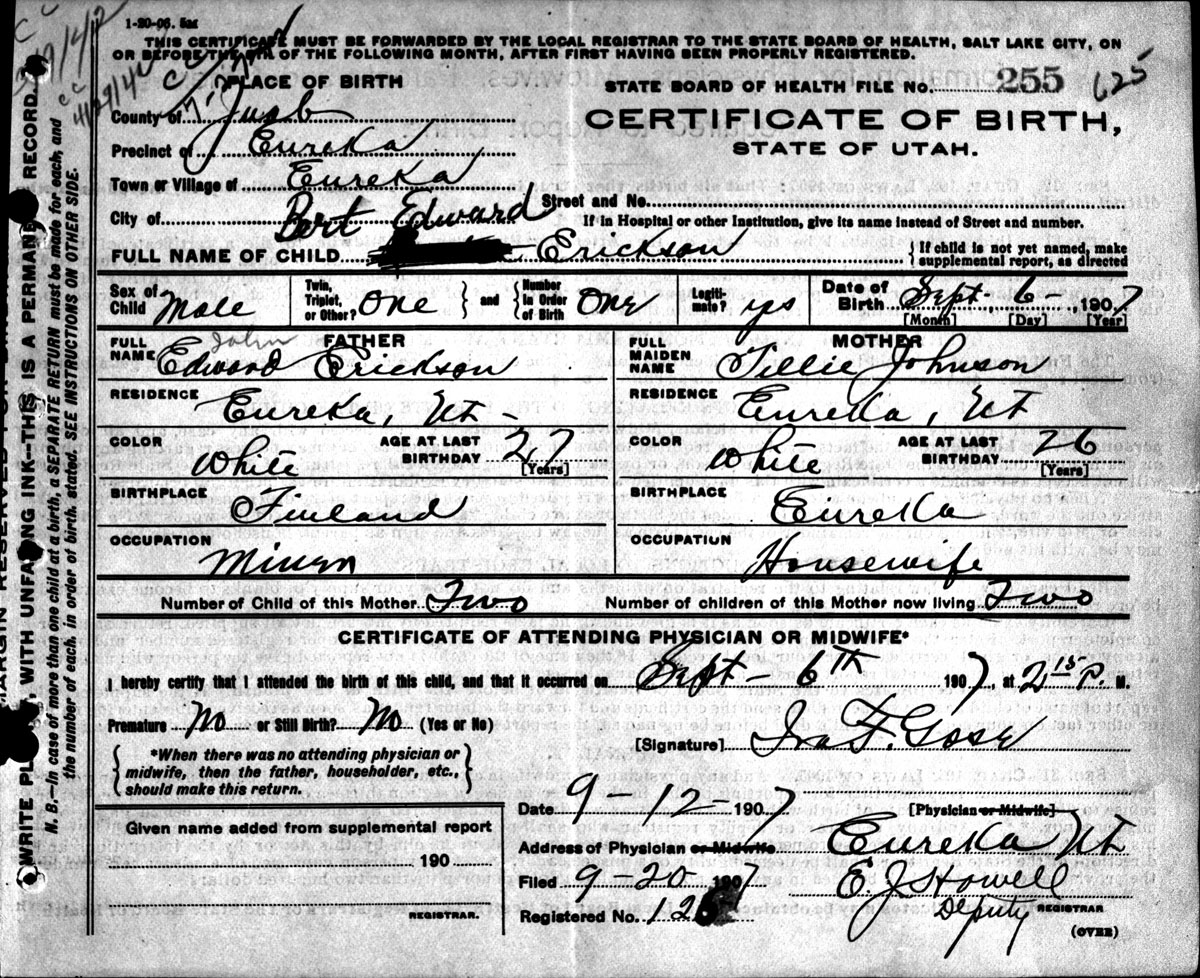 1-20-06. 5m
THIS CERTIFICATE MUST BE FORWARDED BY THE LOCAL REGISTRAR TO THE STATE BOARD OF HEALTH, SALT LAKE CITY, ON
OR BEFORE THE 5TH OF THE FOLLOWING MONTH, AFTER FIRST HAVING BEEN PROPERLY REGISTERED.
PLACE OF BIRTH
STATE BOARD OF HEALTH FILE NO. 255 625
County of Juab
CERTIFICATE OF BIRTH,
Precinct of Eureka
STATE OF UTAH.
Town or Village of Eureka
Street and No.
City of
If in Hospital or other Institution, give its name instead of Street and number.
Bert Edward
FULL NAME OF CHILD Erickson
If child is not yet named, make
supplemental report, as directed
Sex of Child Male
Twin, Triplet, or Other? One and Number In Order of Birth One
Legitimate? yes
Date of Birth Sept. 6 - 1907
[Month] [Day] [Year]
FATHER
FULL NAME John Edward Erickson
RESIDENCE Eureka, Ut -
COLOR White
AGE AT LAST BIRTHDAY 27
[Years]
BIRTHPLACE Finland
OCCUPATION Miner
MOTHER
FULL MAIDEN NAME Tillie Johnson
RESIDENCE Eureka, Ut
COLOR White
AGE AT LAST BIRTHDAY 26
[Years]
BIRTHPLACE Eureka
OCCUPATION Housewife
Number of Child of this Mother Two
Number of children of this Mother now living Two
CERTIFICATE OF ATTENDING PHYSICIAN OR MIDWIFE*
I hereby certify that I attended the birth of this child, and that it occurred on Sept - 6th 1907, at 2 15 P. M.
Premature No or Still Birth? No (Yes or No)
[Signature] Ira F. Gose
*When there was no attending physician or
midwife, then the father, householder, etc.,
should make this return.
Date 9-12-1907
[Physician or Midwife]
Given name added from supplemental report
190
REGISTRAR.
Address of Physician or Midwife Eureka Ut
Filed 9-20 1907 E J Howell
Registered No. 12
Deputy REGISTRAR
(OVER)
WRITE PLAINLY, WITH UNFADING INK—THIS IS A PERMANENT RECORD.
N. B.—In case of more than one child at a birth, a SEPARATE RETURN must be made for each, and
the number of each, in order of birth, stated. SEE INSTRUCTIONS ON OTHER SIDE.